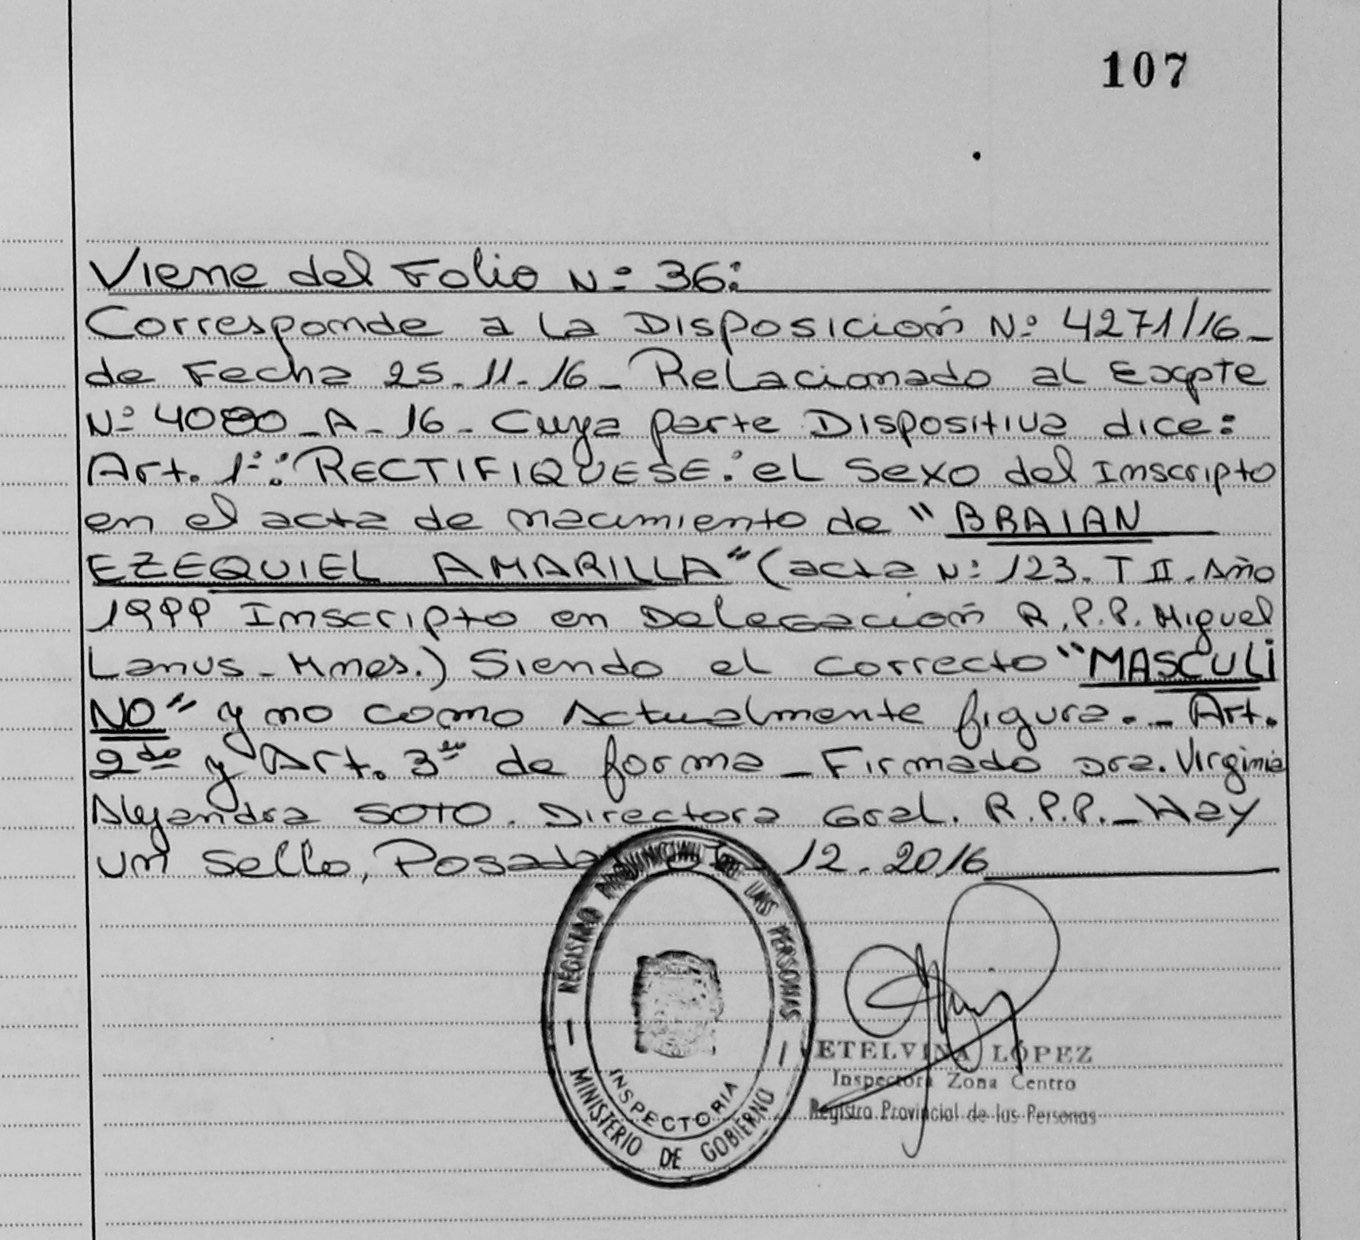 107
Viene del Folio Nº 36:
Corresponde a la Disposición Nº 4271/16_
de Fecha 25.11.16_ Relacionado al Expte
Nº 4080_A_16_ Cuya parte Dispositiva dice:
Art. 1º: "RECTIFIQUESE: el Sexo del Inscripto
en el acta de nacimiento de "BRAIAN
EZEQUIEL AMARILLA" (acta Nº 123. T II. Año
1999 Inscripto en Delegación R.P.P. Miguel
Lanus_Mnes.) Siendo el correcto "MASCULI
NO" y no como Actualmente figura._ Art.
2do y Art. 3er de forma_Firmado Dra. Virginia
Alejandra SOTO. Directora Gral. R.P.P._Hay
un Sello, Posadas 12.2016
REGISTRO PROVINCIAL DE LAS PERSONAS
INSPECTORIA
MINISTERIO DE GOBIERNO
ETELVINA LÓPEZ
Inspectora Zona Centro
Registro Provincial de las Personas